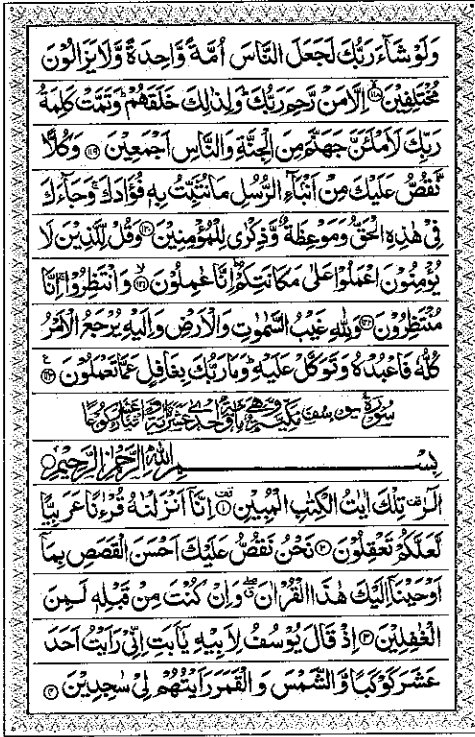 وَلَوْ شَآءَ رَبُّكَ لَجَعَلَ النَّاسَ اُمَّةً وَّاحِدَةً وَّلَا يَزَالُوْنَ
مُخْتَلِفِيْنَ ۙ﴿۱۱۸﴾ اِلَّا مَنْ رَّحِمَ رَبُّكَ ؕ وَلِذٰلِكَ خَلَقَهُمْ ؕ وَتَمَّتْ كَلِمَةُ
رَبِّكَ لَاَمْلَئَنَّ جَهَنَّمَ مِنَ الْجِنَّةِ وَالنَّاسِ اَجْمَعِيْنَ ﴿۱۱۹﴾ وَكُلًّا
نَّقُصُّ عَلَيْكَ مِنْ اَنْۢبَآءِ الرُّسُلِ مَا نُثَبِّتُ بِهٖ فُؤَادَكَ ۚ وَجَآءَكَ
فِيْ هٰذِهِ الْحَقُّ وَمَوْعِظَةٌ وَّذِكْرٰى لِلْمُؤْمِنِيْنَ ﴿۱۲۰﴾ وَقُلْ لِّلَّذِيْنَ لَا
يُؤْمِنُوْنَ اعْمَلُوْا عَلٰى مَكَانَتِكُمْ ؕ اِنَّا عٰمِلُوْنَ ۙ﴿۱۲۱﴾ وَانْتَظِرُوْا ۚ اِنَّا
مُنْتَظِرُوْنَ ﴿۱۲۲﴾ وَلِلّٰهِ غَيْبُ السَّمٰوٰتِ وَالْاَرْضِ وَاِلَيْهِ يُرْجَعُ الْاَمْرُ
كُلُّهٗ فَاعْبُدْهُ وَتَوَكَّلْ عَلَيْهِ ؕ وَمَا رَبُّكَ بِغَافِلٍ عَمَّا تَعْمَلُوْنَ ﴿۱۲۳﴾
سورة يوسف مكية وهي مائة واحدى عشرة اية واثنا عشر ركوعا
بِسْمِ اللّٰهِ الرَّحْمٰنِ الرَّحِيْمِ
الٓرٰ ۟ تِلْكَ اٰيٰتُ الْكِتٰبِ الْمُبِيْنِ ﴿۱﴾ اِنَّاۤ اَنْزَلْنٰهُ قُرْءٰنًا عَرَبِيًّا
لَّعَلَّكُمْ تَعْقِلُوْنَ ﴿۲﴾ نَحْنُ نَقُصُّ عَلَيْكَ اَحْسَنَ الْقَصَصِ بِمَاۤ
اَوْحَيْنَاۤ اِلَيْكَ هٰذَا الْقُرْاٰنَ ۖ وَاِنْ كُنْتَ مِنْ قَبْلِهٖ لَمِنَ
الْغٰفِلِيْنَ ﴿۳﴾ اِذْ قَالَ يُوْسُفُ لِاَبِيْهِ يٰۤاَبَتِ اِنِّيْ رَاَيْتُ اَحَدَ
عَشَرَ كَوْكَبًا وَّالشَّمْسَ وَالْقَمَرَ رَاَيْتُهُمْ لِيْ سٰجِدِيْنَ ﴿۴﴾